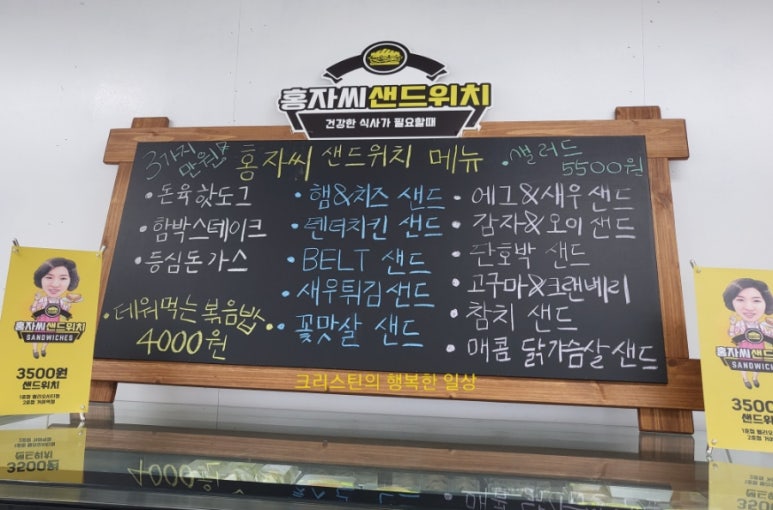 홍자씨샌드위치
건강한 식사가 필요할때
3가지
만원
홍자씨 샌드위치 메뉴
•샐러드
5500원
•돈육핫도그
•함박스테이크
•등심돈가스
•데워먹는 볶음밥..
4000원
•햄&치즈 샌드
•텐더치킨 샌드
•BELT 샌드
•새우튀김 샌드
•꽃맛살 샌드
•에그&새우 샌드
•감자&오이 샌드
•단호박 샌드
•고구마&크랜베리
•참치 샌드
•매콤 닭가슴살 샌드
크리스틴의 행복한 일상
홍자씨샌드위치
SANDWICHES
3500원
샌드위치
홍자씨샌드위치
SANDWICHES
3500
샌드위치
4000원